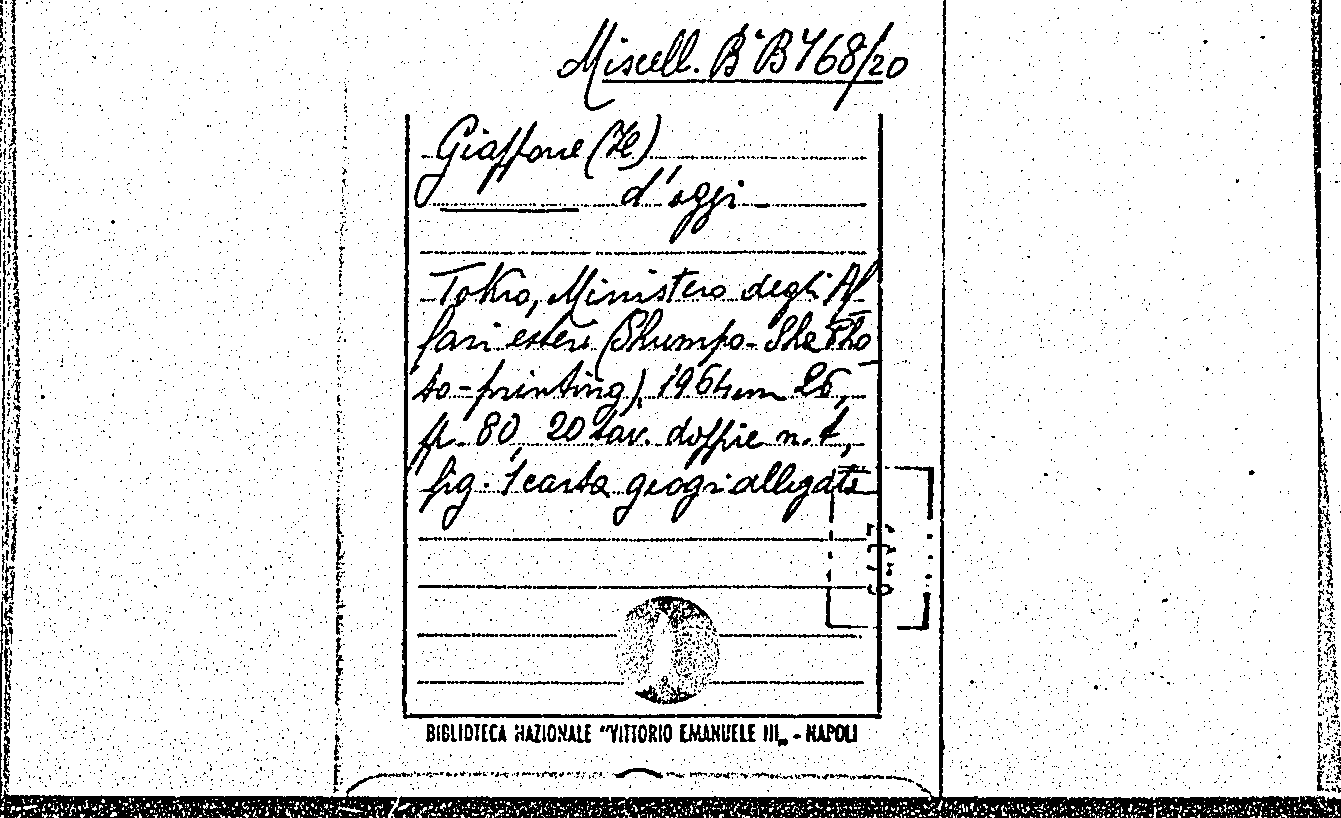 Miscell. B. B 768/20
Giappone (Il)
d'oggi
Tokio, Ministero degli Af-
fari esteri (Shumpo-Sha Pho
to-printing), 1964, cm 26,
pp. 80, 20 tav. doppie n.t.,
fig. 1 carta geogr. allegata
BIBLIOTECA NAZIONALE "VITTORIO EMANUELE III„ - NAPOLI